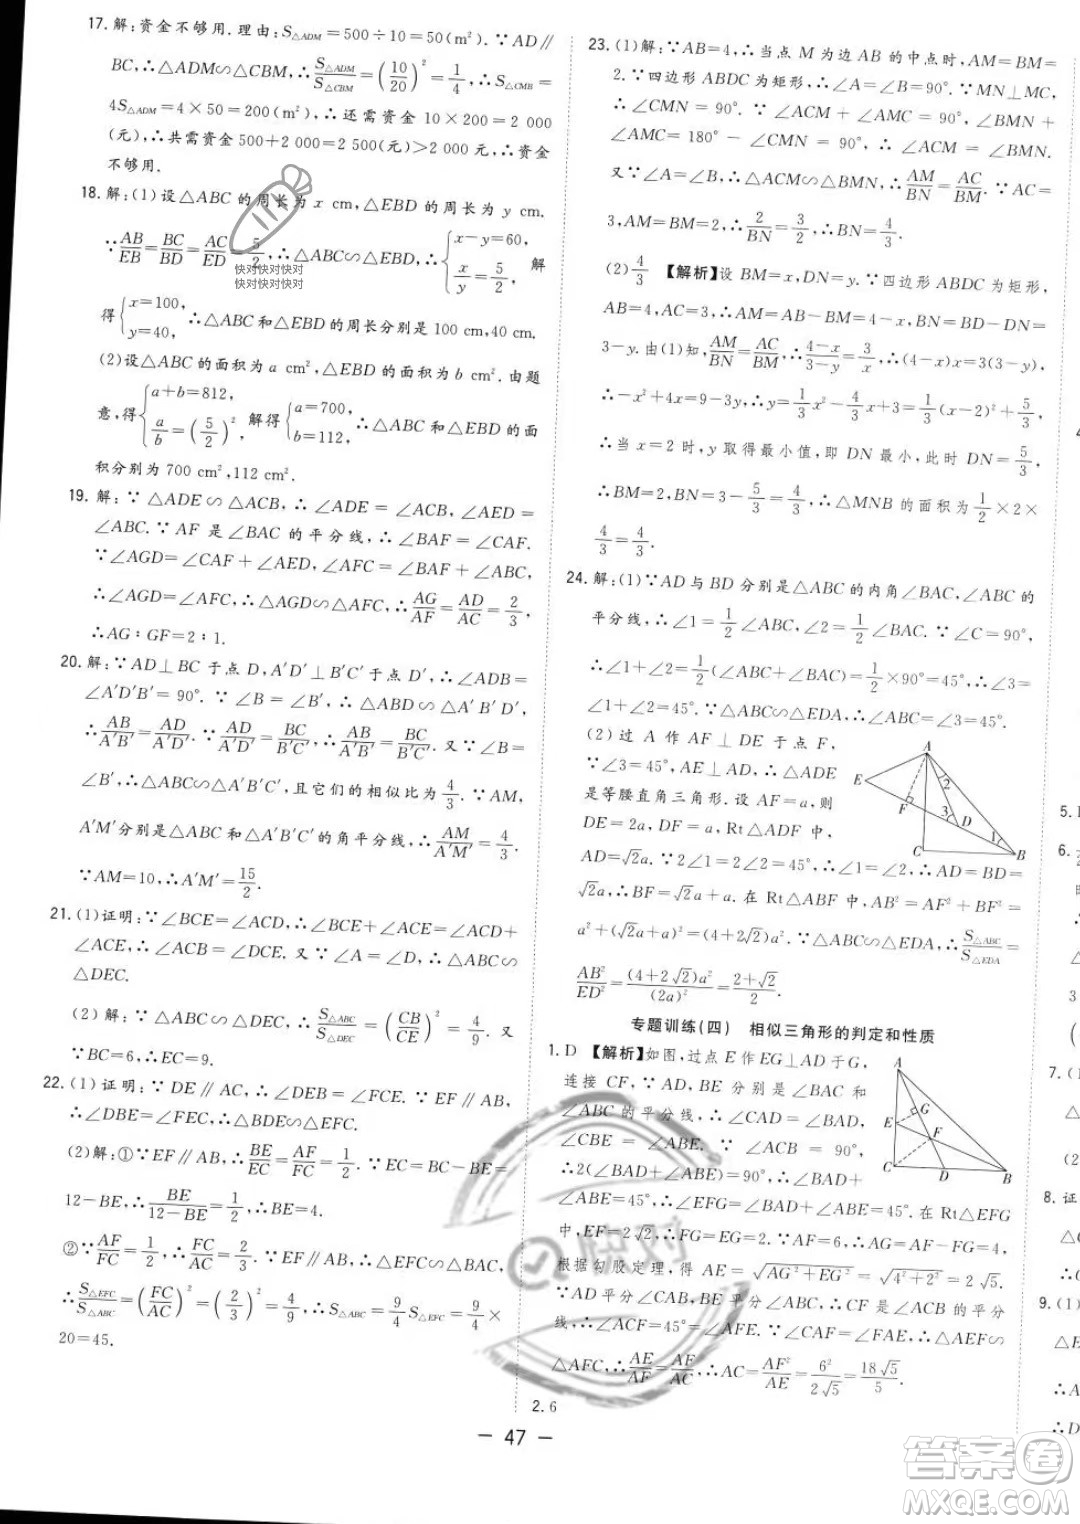 17. 解:资金不够用.理由:S△ADM=500÷10=50(m²).∵AD∥
BC,∴△ADM∽△CBM,∴S△ADM/S△CBM=(10/20)²=1/4,∴S△CMB=
4S△ADM=4×50=200(m²),∴还需资金10×200=2 000
(元),∴共需资金500+2 000=2 500(元)>2 000元,∴资金
不够用.
18. 解:(1)设△ABC的周长为x cm,△EBD的周长为y cm.
∵AB/EB=BC/BD=AC/ED=5/2,∴△ABC∽△EBD,∴{x-y=60, x/y=5/2, 解
得{x=100, y=40, ∴△ABC和△EBD的周长分别是100 cm,40 cm.
(2)设△ABC的面积为a cm²,△EBD的面积为b cm².由题
意,得{a+b=812, a/b=(5/2)², 解得{a=700, b=112, ∴△ABC和△EBD的面
积分别为700 cm²,112 cm².
19. 解:∵△ADE∽△ACB,∴∠ADE=∠C,∠AED=
∠ABC.∵AF是∠BAC的平分线,∴∠BAF=∠CAF.
∵∠AGD=∠CAF+∠AED,∠AFC=∠BAF+∠ABC,
∴∠AGD=∠AFC,∴△AGD∽△AFC,∴AG/AF=AD/AC=2/3,
∴AG∶GF=2∶1.
20. 解:∵AD⊥BC于点D,A′D′⊥B′C′于点D′,∴∠ADB=
∠A′D′B′=90°.∵∠B=∠B′,∴△ABD∽△A′B′D′,
∴AB/A′B′=AD/A′D′.∵AD/A′D′=BC/B′C′,∴AB/A′B′=BC/B′C′.又∵∠B=
∠B′,∴△ABC∽△A′B′C′,且它们的相似比为4/3.∵AM,
A′M′分别是△ABC和△A′B′C′的角平分线,∴AM/A′M′=4/3.
∵AM=10,∴A′M′=15/2.
21. (1)证明:∵∠BCE=∠ACD,∴∠BCE+∠ACE=∠ACD+
∠ACE,∴∠ACB=∠DCE.又∵∠A=∠D,∴△ABC∽
△DEC.
(2)解:∵△ABC∽△DEC,∴S△ABC/S△DEC=(CB/CE)²=4/9.又
∵BC=6,∴EC=9.
22. (1)证明:∵DE∥AC,∴∠DEB=∠FCE.∵EF∥AB,
∴∠DBE=∠FEC,∴△BDE∽△EFC.
(2)解:①∵EF∥AB,∴BE/EC=AF/FC=1/2.∵EC=BC-BE=
12-BE,∴BE/(12-BE)=1/2,∴BE=4.
②∵AF/FC=1/2,∴FC/AC=2/3.∵EF∥AB,∴△EFC∽△BAC,
∴S△EFC/S△ABC=(FC/AC)²=(2/3)²=4/9,∴S△ABC=9/4S△EFC=9/4×
20=45.
23. (1)解:∵AB=4,∴当点M为边AB的中点时,AM=BM=
2.∵四边形ABDC为矩形,∴∠A=∠B=90°.∵MN⊥MC,
∴∠CMN=90°.∵∠ACM+∠AMC=90°,∠BMN+
∠AMC=180°-∠CMN=90°,∴∠ACM=∠BMN.
又∵∠A=∠B,∴△ACM∽△BMN,∴AM/BN=AC/BM.∵AC=
3,AM=BM=2,∴2/BN=3/2,∴BN=4/3.
(2)4/3 【解析】设BM=x,DN=y.∵四边形ABDC为矩形,
AB=4,AC=3,∴AM=AB-BM=4-x,BN=BD-DN=
3-y.由(1)知,AM/BN=AC/BM,∴(4-x)/(3-y)=3/x,∴(4-x)x=3(3-y),
∴-x²+4x=9-3y,∴y=1/3x²-4/3x+3=1/3(x-2)²+5/3,
∴当x=2时,y取得最小值,即DN最小,∴DN=5/3,
∴BM=2,BN=3-5/3=4/3,∴△MNB的面积为1/2×2×
4/3=4/3.
24. 解:(1)∵AD与BD分别是△ABC的内角∠BAC,∠ABC的
平分线,∴∠1=1/2∠ABC,∠2=1/2∠BAC.∵∠C=90°,
∴∠1+∠2=1/2(∠ABC+∠BAC)=1/2×90°=45°,∴∠3=
∠1+∠2=45°.∵△ABC∽△EDA,∴∠ABC=∠3=45°.
(2)过A作AF⊥DE于点F,
∵∠3=45°,AE⊥AD,∴△ADE
是等腰直角三角形.设AF=a,则
DE=2a,DF=a,Rt△ADF中,
AD=√2a.∵2∠1=2∠2=45°,∴∠1=∠2,∴AD=BD=
√2a,∴BF=√2a+a.在Rt△ABF中,AB²=AF²+BF²=
a²+(√2a+a)²=(4+2√2)a².∵△ABC∽△EDA,∴S△ABC/S△EDA=
AB²/ED²=(4+2√2)a²/(2a)²=(2+√2)/2.
A
E
2
F
3
D
1
C
B
专题训练(四) 相似三角形的判定和性质
1. D 【解析】如图,过点E作EG⊥AD于G,
连接CF,∵AD,BE分别是∠BAC和
∠ABC的平分线,∴∠CAD=∠BAD,
∠CBE=∠ABE.∵∠ACB=90°,
∴2(∠BAD+∠ABE)=90°,∴∠BAD+
∠ABE=45°,∴∠EFG=∠BAD+∠ABE=45°.在Rt△EFG
中,EF=2√2,∴FG=EG=2.∵AF=6,∴AG=AF-FG=4.
根据勾股定理,得AE=√(AG²+EG²)=√(4²+2²)=2√5.
∵AD平分∠CAB,BE平分∠ABC,∴CF是∠ACB的平分
线,∴∠ACF=45°=∠AFE.∵∠CAF=∠FAE,∴△AEF∽
△AFC,∴AE/AF=AF/AC,∴AC=AF²/AE=6²/2√5=18√5/5.
A
G
E
F
C
D
B
2. 6
— 47 —
5.
6.
7. (1
(2
8. 证
△
9. (1)
快对快对快对
快对快对快对
快对
答案圈
MXQE.COM